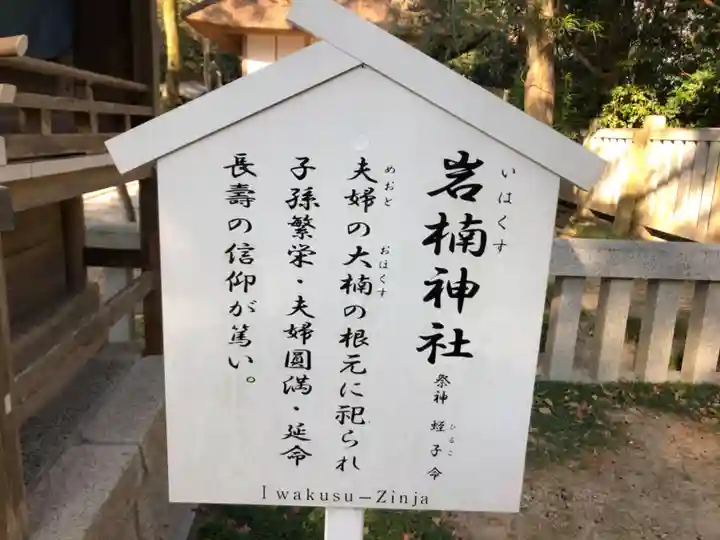 岩楠神社
いはくす
祭神 蛭子命
ひるこ
夫婦の大楠の根元に祀られ
めおと
おほくす
子孫繁栄・夫婦圓満・延命
長壽の信仰が篤い。
Iwakusu－Zinja